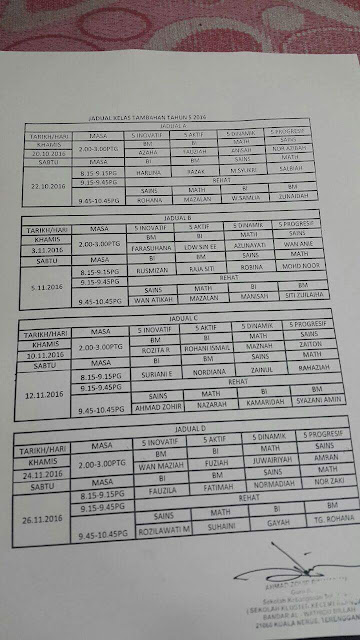 JADUAL KELAS TAMBAHAN TAHUN 5 2016
JADUAL A
TARIKH/HARI MASA 5 INOVATIF 5 AKTIF 5 DINAMIK 5 PROGRESIF
KHAMIS 2.00-3.00PTG BM BI MATH SAINS
20.10.2016 AZAHA FAUZIAH ANISAH NOR AZIBAH
SABTU BI BM SAINS MATH
22.10.2016 8.15-9.15PG HARLINA RAZAK M.SYUKRI SALBIAH
9.15-9.45PG REHAT
SAINS MATH BI BM
9.45-10.45PG ROHANA MAZALAN W.SAMLIA ZUNAIDAH
JADUAL B
TARIKH/HARI MASA 5 INOVATIF 5 AKTIF 5 DINAMIK 5 PROGRESIF
KHAMIS 2.00-3.00PTG BM BI MATH SAINS
3.11.2016 FARASUHANA LOW SIN EE AZUNAYATI WAN ANIE
SABTU BI BM SAINS MATH
5.11.2016 8.15-9.15PG RUSMIZAN RAJA SITI ROBINA MOHD NOOR
9.15-9.45PG REHAT
SAINS MATH BI BM
9.45-10.45PG WAN ATIKAH MAZALAN MANISAH SITI ZULAIHA
JADUAL C
TARIKH/HARI MASA 5 INOVATIF 5 AKTIF 5 DINAMIK 5 PROGRESIF
KHAMIS 2.00-3.00PTG BM BI MATH SAINS
10.11.2016 ROZITA R ROHANI ISMAIL MAZNAH ZAITON
SABTU BI BM SAINS MATH
12.11.2016 8.15-9.15PG SURIANI E NORDIANA ZAINUL RAHAZIAH
9.15-9.45PG REHAT
SAINS MATH BI BM
9.45-10.45PG AHMAD ZOHIR NAZARAH KAMARIDAH SYAZANI AMIN
JADUAL D
TARIKH/HARI MASA 5 INOVATIF 5 AKTIF 5 DINAMIK 5 PROGRESIF
KHAMIS 2.00-3.00PTG BM BI MATH SAINS
24.11.2016 WAN MAZIAH FUZIAH JUWAIRIYAH AMRAN
SABTU BI BM SAINS MATH
26.11.2016 8.15-9.15PG FAUZILA FATIMAH NORMADIAH NOR ZAKI
9.15-9.45PG REHAT
SAINS MATH BI BM
9.45-10.45PG ROZILAWATI M SUHAINI GAYAH TG. ROHANA
AHMAD
Sekolah Kebangsaan
(SEKOLAH KLUSTER
BANDAR AL -
KUALA NERUS,